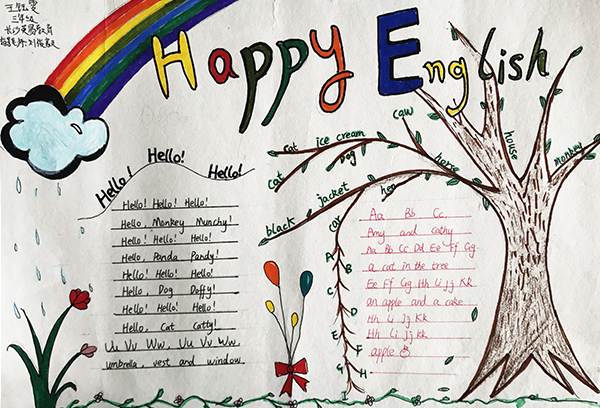 三年级
长沙英昂教育
Happy English
Hello! Hello! Hello!
Hello! Hello! Hello!
Hello, Monkey Munchy!
Hello! Hello! Hello!
Hello, Panda Pandy!
Hello! Hello! Hello!
Hello, Dog Doffy!
Hello! Hello! Hello!
Hello, Cat Catty!
Uu Vv Ww, Uu Vv Ww,
umbrella, vest and window
cat
ice cream
caw
cat
Dog
horse
house
monkey
black
jacket
hen
car
A
B
C
D
E
F
G
H
Aa Bb Cc
Amy and cathy
Aa Bb Cc Dd Ee Ff Gg
a cat in the tree
Ee Ff Gg Hh Ii Jj Kk
an apple and a cake
Hh Ii Jj Kk
Hh Ii Jj Kk
apple